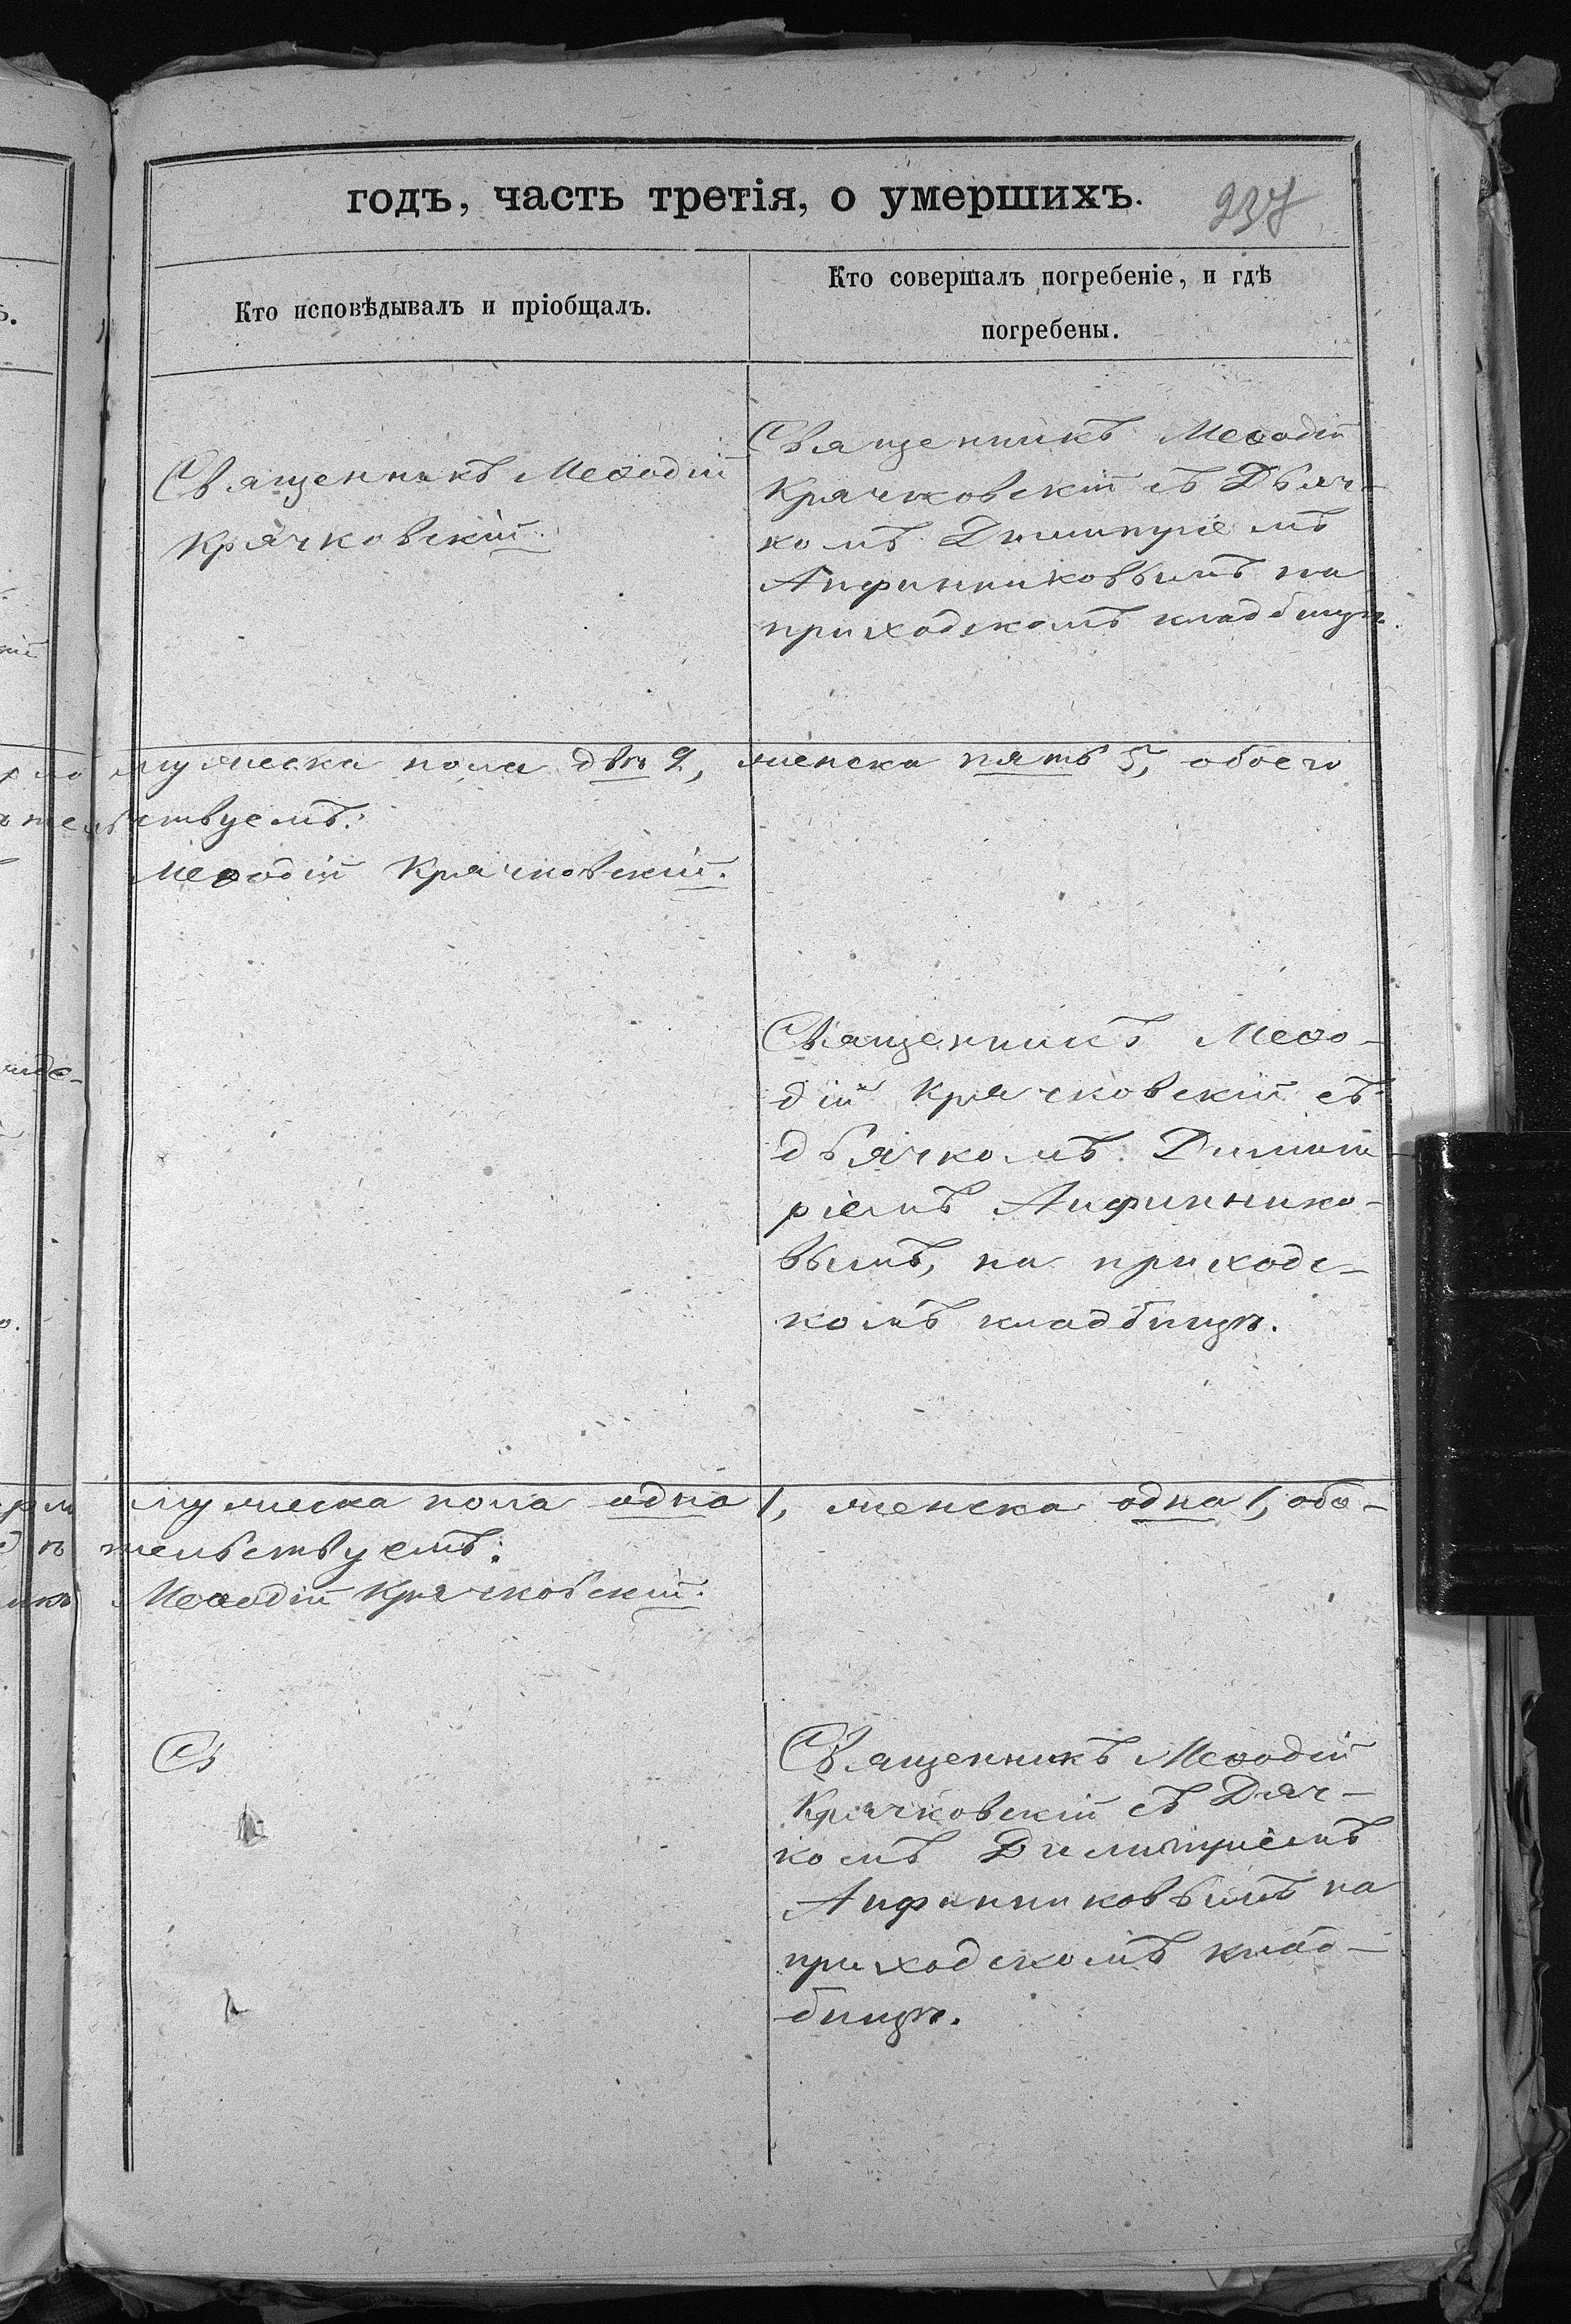 годъ, часть третія, о умершихъ. 237
Кто исповѣдывалъ и пріобщалъ.
Кто совершалъ погребеніе, и гдѣ
погребены.
Священникъ Меѳодій
Крячковскій.
Священникъ Меѳодій
Крячковскій съ Дьяч-
комъ Димитріемъ
Анфиниковымъ на
приходскомъ кладбищѣ.
мужеска пола двѣ 2, женска пять 5, обоего
ствуемъ:
Меѳодій Крячковскій.
Священникъ Меѳо-
дій Крячковскій съ
дьячкомъ Димит-
ріемъ Анфинико-
вымъ, на приходс-
комъ кладбищѣ.
мужеска пола одна 1, женска одна 1, обо-
тельствуемъ:
Меѳодій Крячковскій.
Св
Священникъ Меѳодій
Крячковскій съ Дяч-
комъ Димитріемъ
Анфиниковымъ на
приходскомъ клад-
бищѣ.